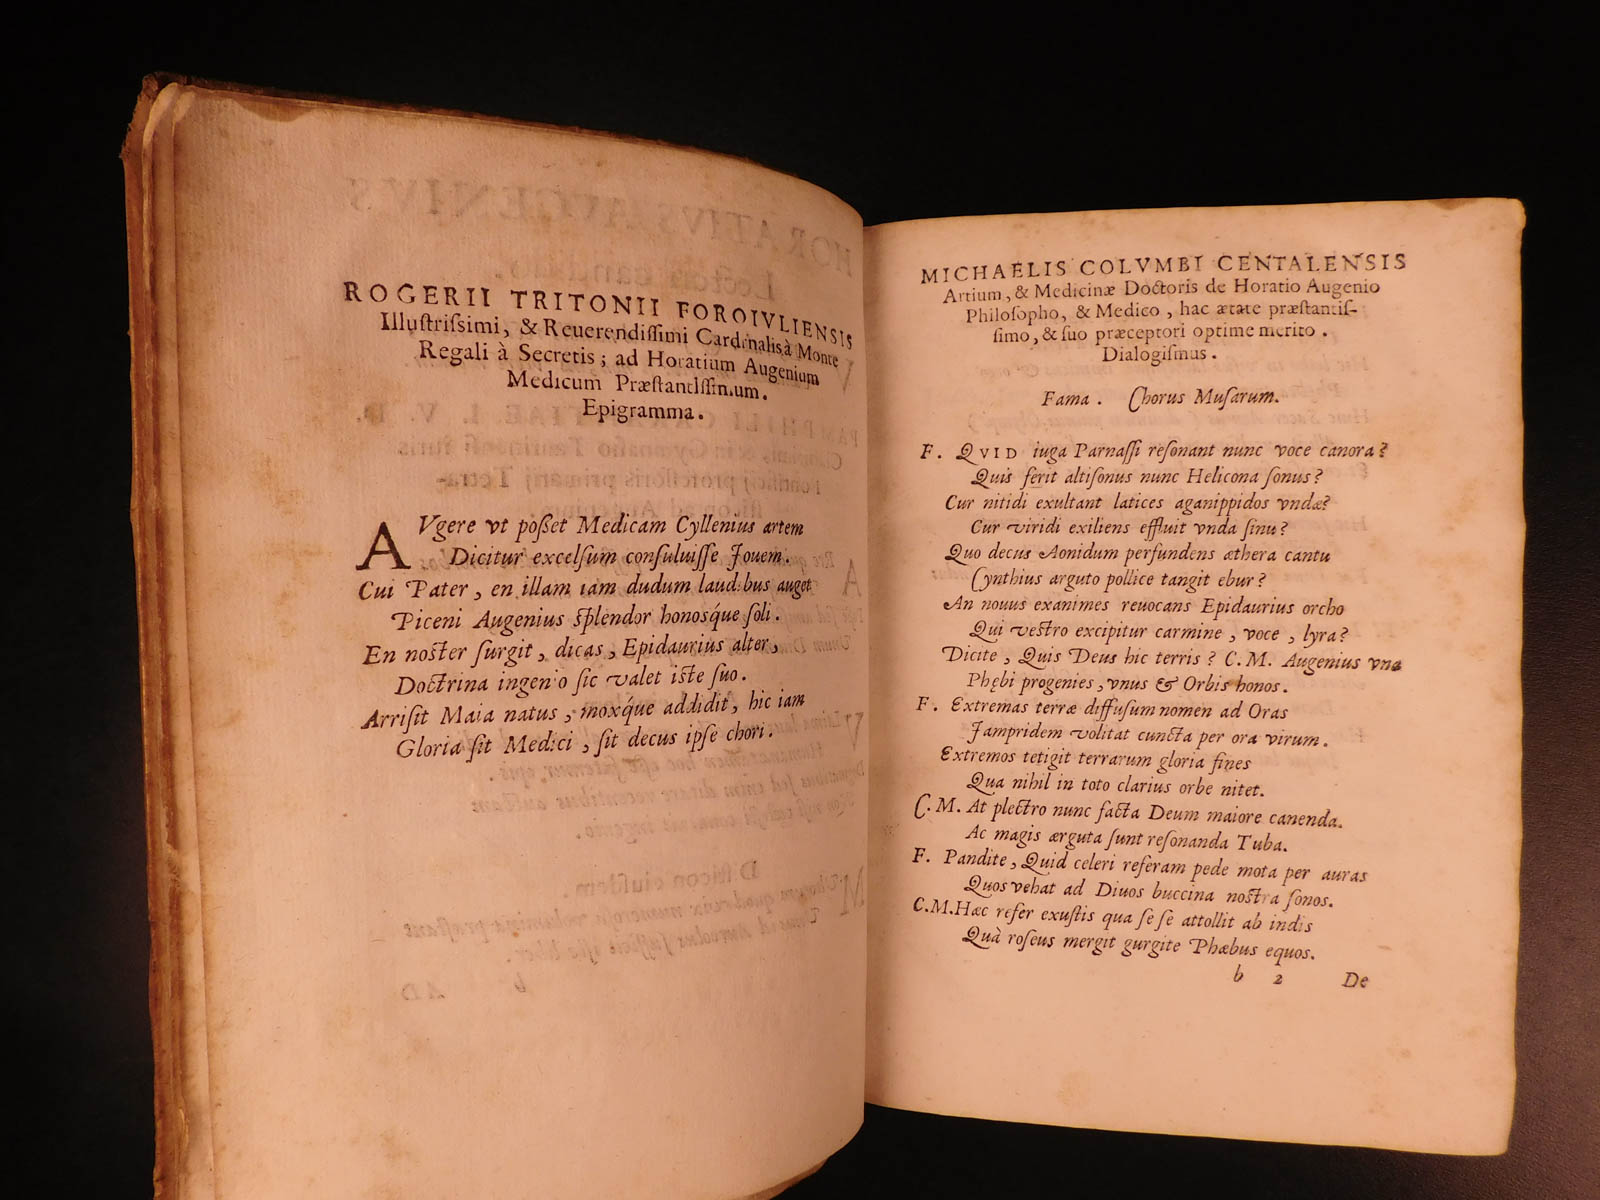 ROGERII TRITONII FOROIVLIENSIS
Illuſtriſsimi, & Reuerendiſsimi Cardinalis à Monte
Regali à Secretis; ad Horatium Augenium
Medicum Præſtantiſsimum.
Epigramma.
AVgere vt poßet Medicam Cyllenius artem
Dicitur excelſum conſuluiſſe Jouem.
Cui Pater, en illam iam dudum laudibus auget
Piceni Augenius ſplendor honosq́ue ſoli.
En noſter ſurgit, dicas, Epidaurius alter,
Doctrina ingenio ſic valet iſte ſuo.
Arriſit Maia natus, moxq́ue addidit, hic iam
Gloria ſit Medici, ſit decus ipſe chori.
MICHAELIS COLVMBI CENTALENSIS
Artium, & Medicinæ Doctoris de Horatio Augenio
Philoſopho, & Medico, hac ætate præſtantiſ-
ſimo, & ſuo præceptori optime merito.
Dialogiſmus.
Fama. Chorus Muſarum.
F. QVID iuga Parnaſſi reſonant nunc voce canora?
Quis ferit altiſonus nunc Helicona ſonus?
Cur nitidi exultant latices aganippidos vndæ?
Cur viridi exiliens effluit vnda ſinu?
Quo decus Aonidum perfundens æthera cantu
Cynthius arguto pollice tangit ebur?
An nouus exanimes reuocans Epidaurius orcho
Qui veſtro excipitur carmine, voce, lyra?
Dicite, Quis Deus hic terris? C.M. Augenius vna
Phębi progenies, vnus & Orbis honos.
F. Extremas terræ diffuſum nomen ad Oras
Jampridem volitat cuncta per ora virum.
Extremos tetigit terrarum gloria fines
Qua nihil in toto clarius orbe nitet.
C.M. At plectro nunc facta Deum maiore canenda.
Ac magis arguta ſunt reſonanda Tuba.
F. Pandite, Quid celeri referam pede mota per auras
Quos vehat ad Diuos buccina noſtra ſonos.
C.M. Hæc refer exuſtis qua ſe ſe attollit ab indis
Quà roſeus mergit gurgite Phœbus equos.
b 2 De